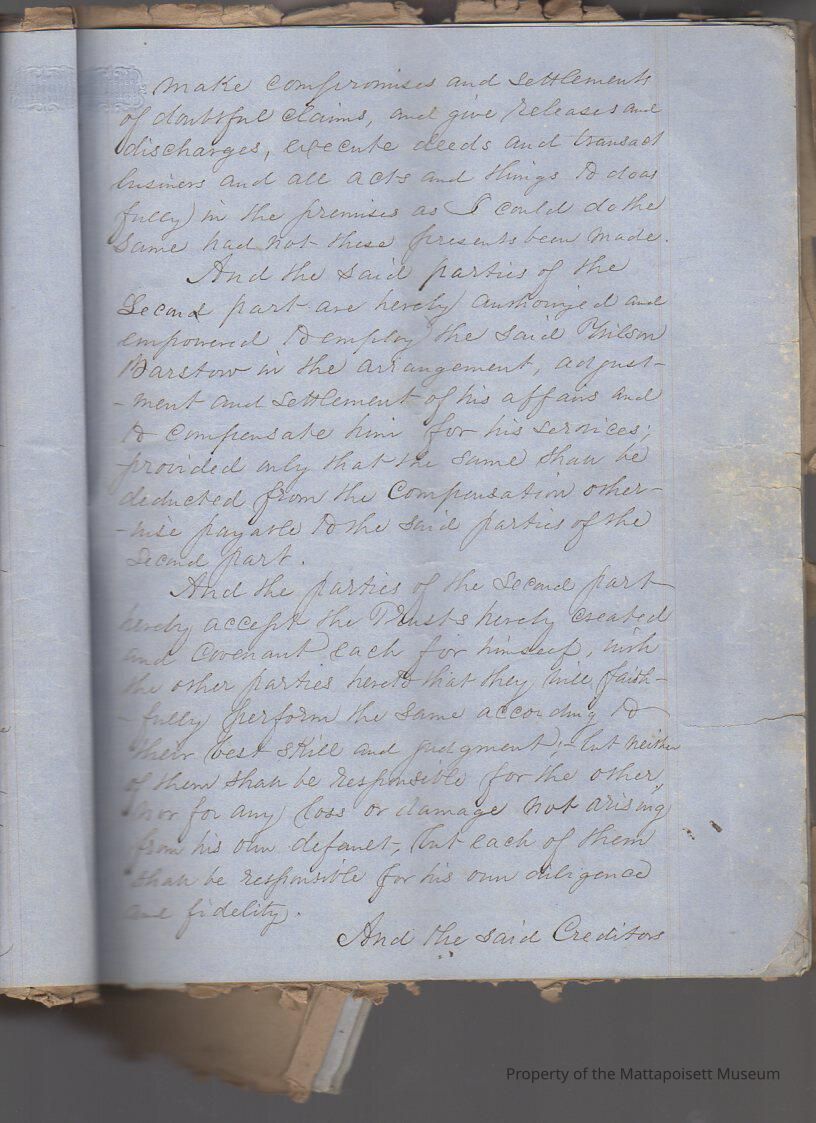 make compromises and settlements
of doubtful claims, and give releases and
discharges, execute deeds and transact
business and all acts and things to do as
fully in the premises as I could do the
same had not these presents been made.
And the said parties of the
Second part are hereby authorized and
empowered to employ the said Wilson
Barstow in the arrangement, adjust-
-ment and settlement of his affairs and
to compensate him for his services;
provided only that the same shall be
deducted from the compensation other-
-wise payable to the said parties of the
Second part.
And the parties of the Second part
hereby accept the Trusts hereby created
and Covenant each for himself, with
the other parties hereto that they will faith-
-fully perform the same according to
their best skill and judgment;- but neither
of them shall be responsible for the other,
nor for any loss or damage not arising
from his own default, but each of them
shall be responsible for his own diligence
and fidelity.
And the said Creditors
Property of the Mattapoisett Museum